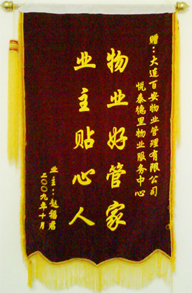 赠：大连百安物业管理有限公司
悦泰德里物业服务中心
物业好管家
业主贴心人
业主：赵锡君
二〇〇九年十月